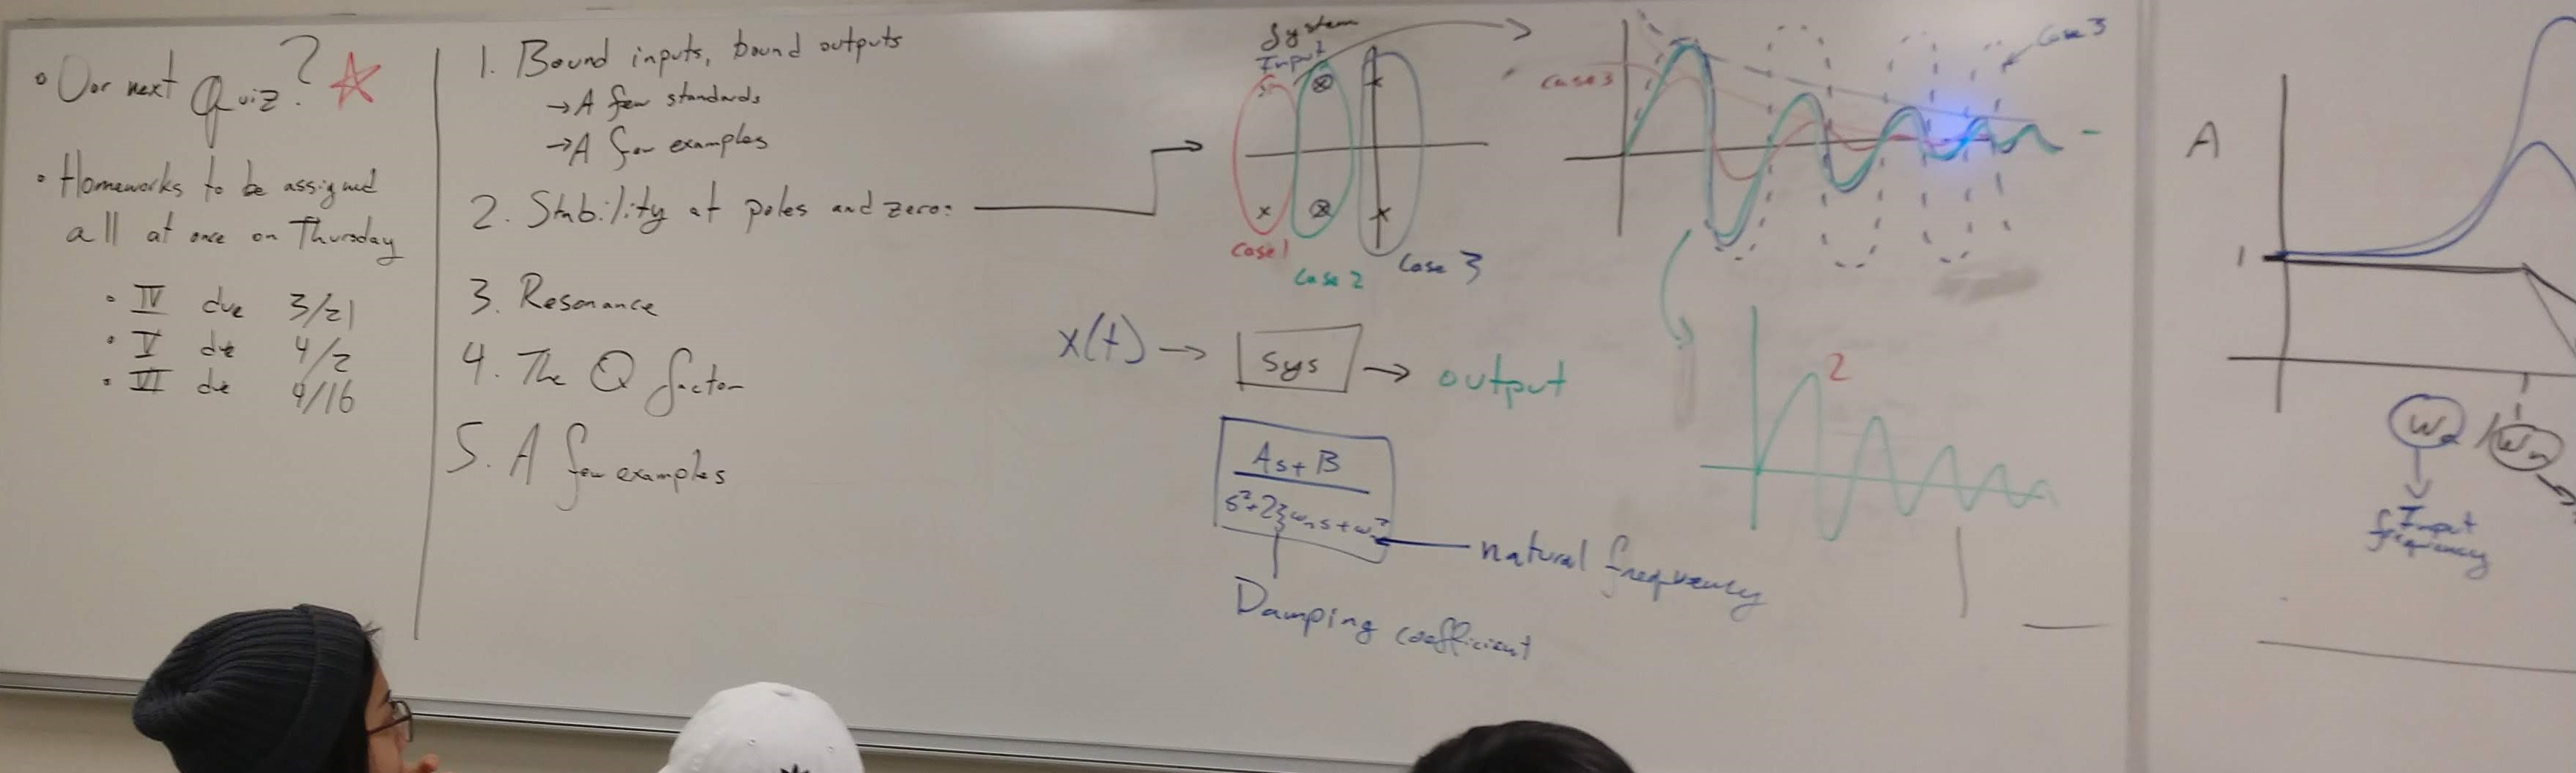 • Our next Quiz?
• Homeworks to be assigned
all at once on Thursday
• IV due 3/21
• V due 4/2
• VI due 4/16
1. Bound inputs, bound outputs
→ A few standards
→ A few examples
2. Stability at poles and zero:
3. Resonance
4. The Q factor
5. A few examples
System
Input
Case 1
Case 2
Case 3
Case 3
Case 3
x(t) → Sys → output
As + B
s²+2ξωₙs+ωₙ²
natural frequency
Damping coefficient
2
A
1
Input
frequency